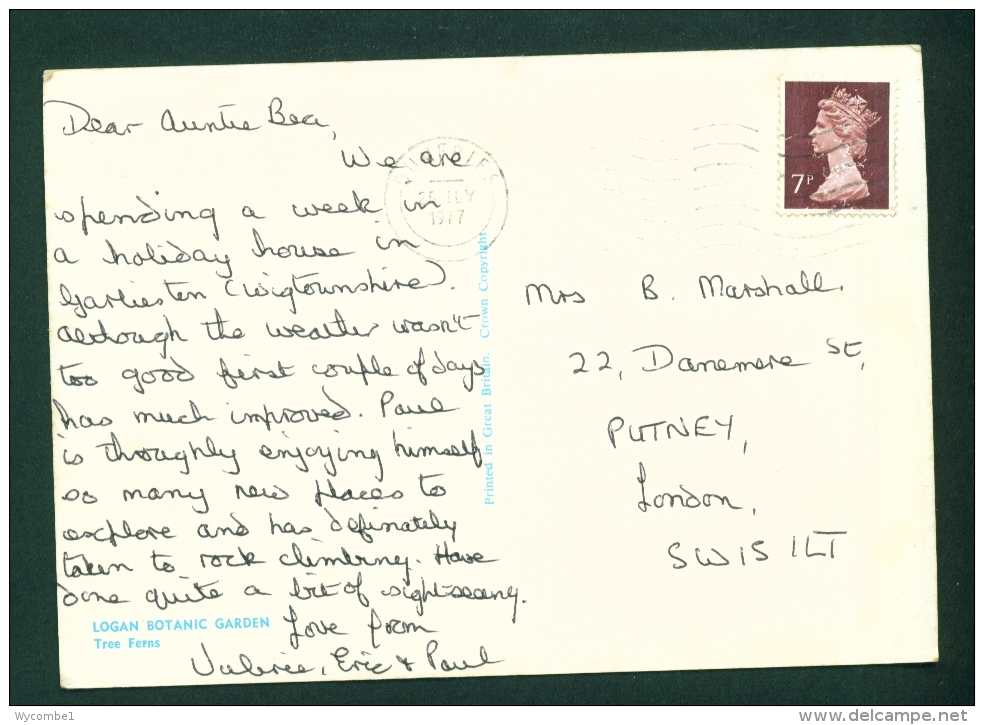 Dear Auntie Bea,
We are
spending a week in
a holiday house in
Garlieston (Wigtownshire).
Although the weather wasn't
too good first couple of days
has much improved. Paul
is thoroughly enjoying himself
so many new places to
explore and has definately
taken to rock climbing. Have
done quite a bit of sight-seeing.
Love from
Valerie, Eric & Paul
LOGAN BOTANIC GARDEN
Tree Ferns
Printed in Great Britain. Crown Copyright
JLY
1977
7P
Mrs B. Marshall.
22, Danemere St,
PUTNEY,
London,
SW15 1LT
Wycombe1
www.delcampe.net